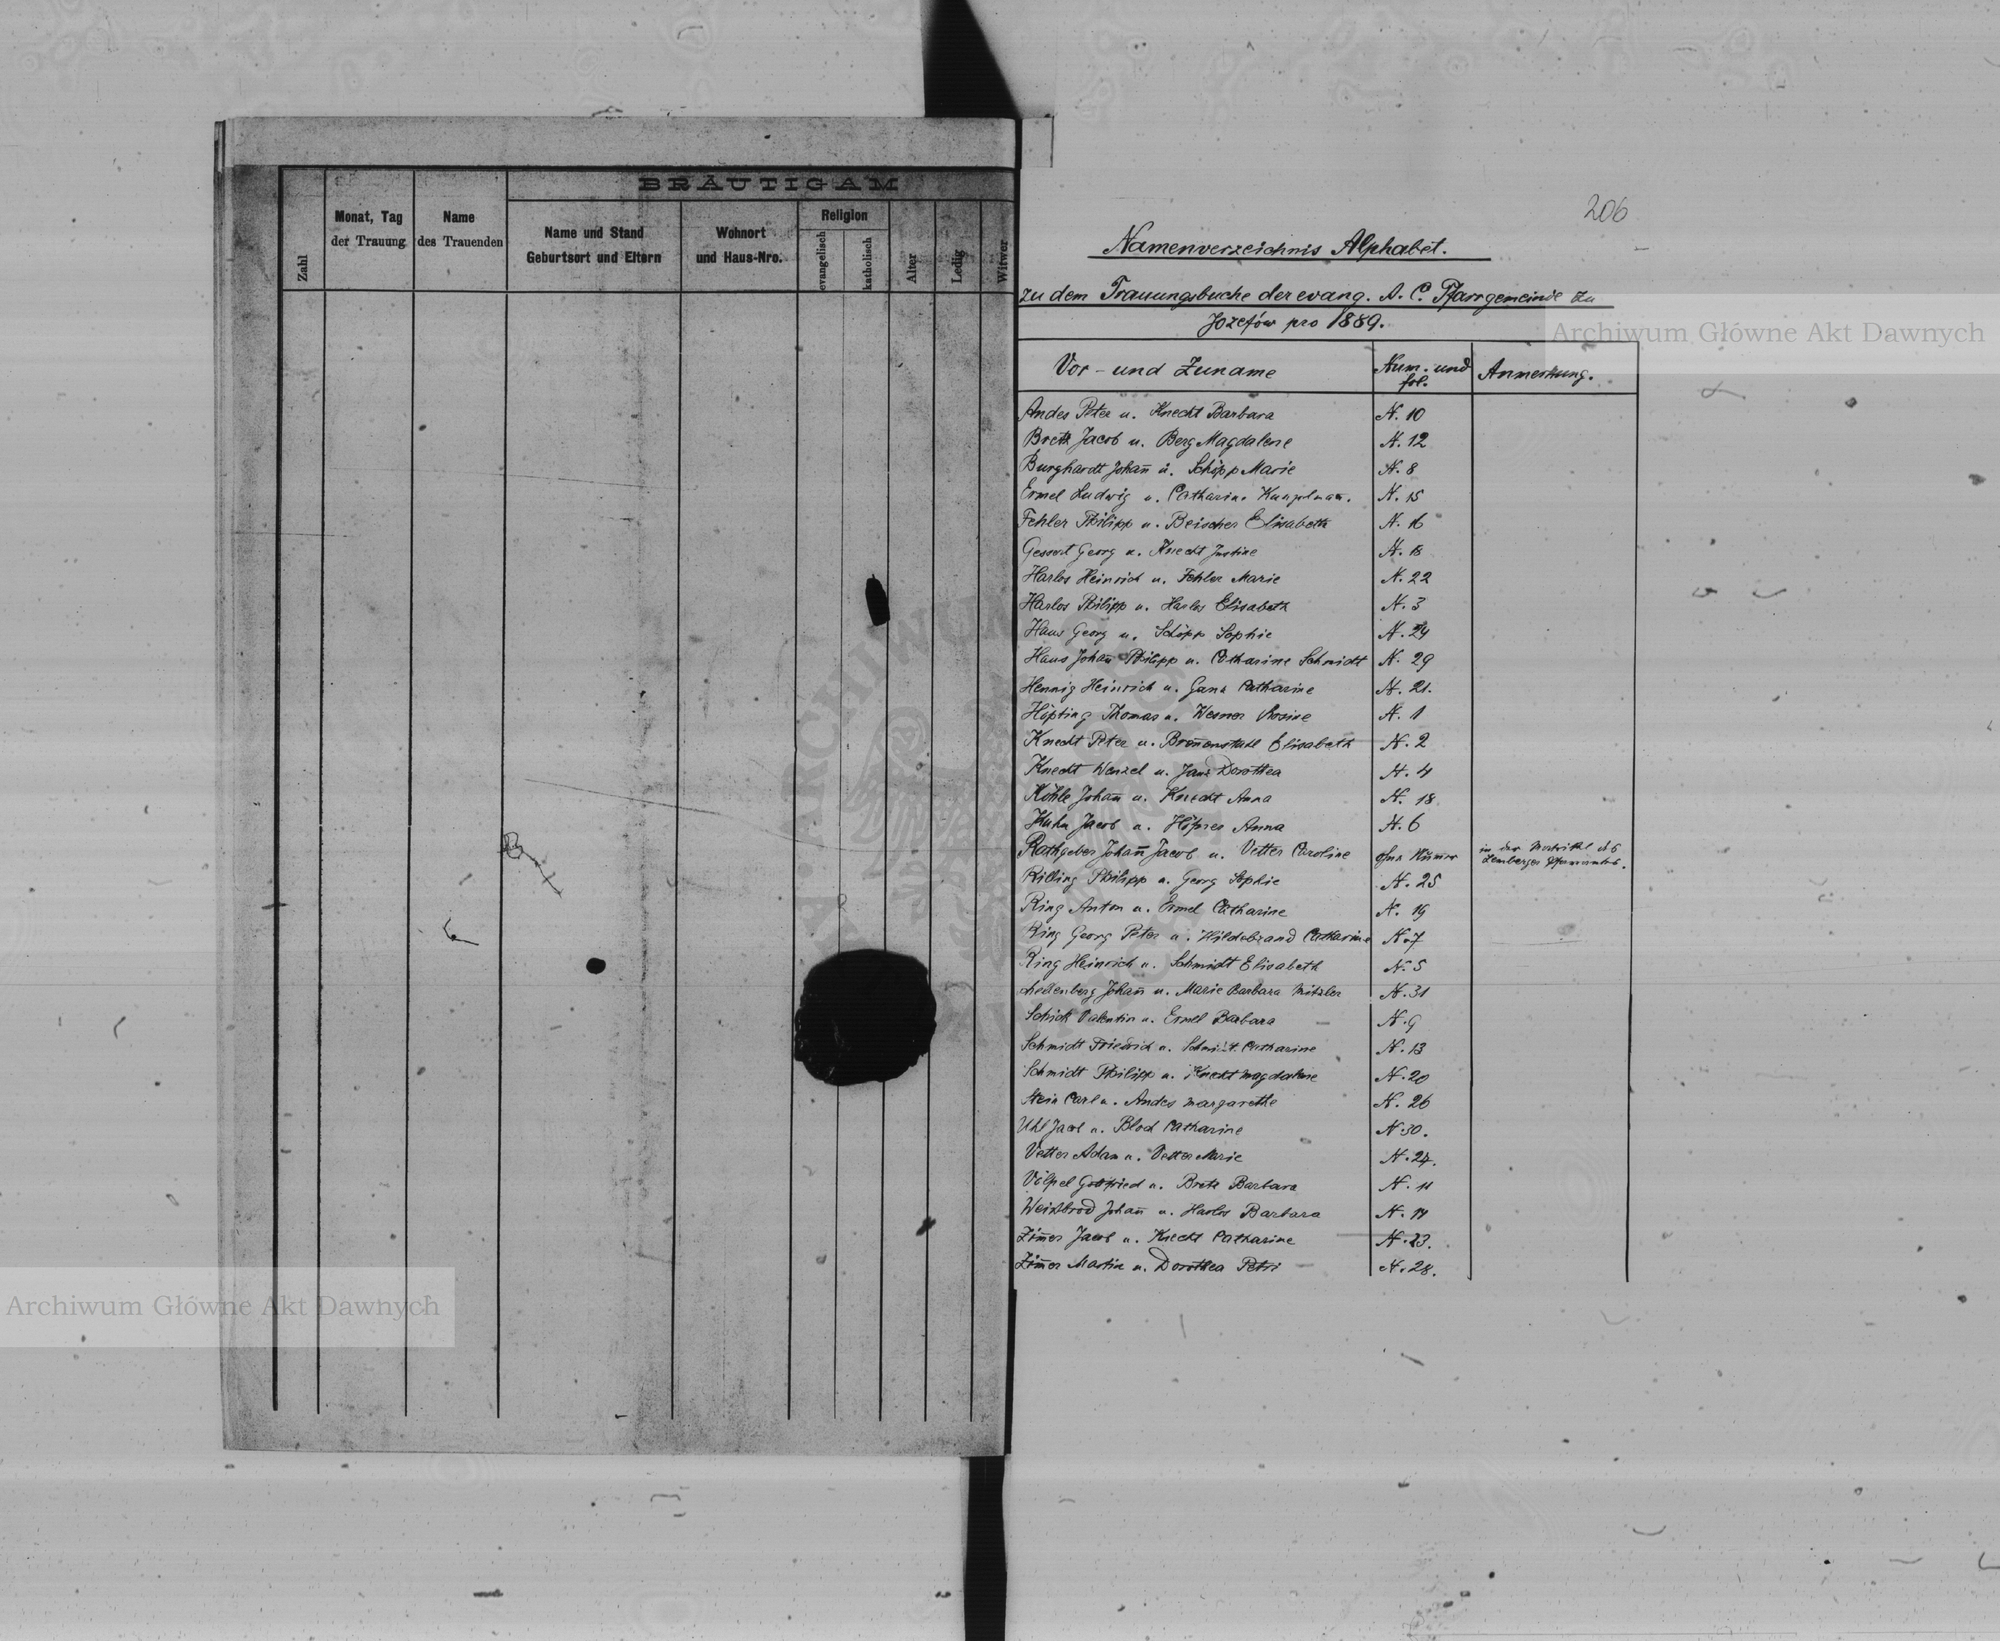 BRÄUTIGAM
Zahl
Monat, Tag
der Trauung
Name
des Trauenden
Name und Stand
Geburtsort und Eltern
Wohnort
und Haus-Nro.
Religion
evangelisch
katholisch
Alter
Ledig
Witwer
206
Namenverzeichnis Alphabet.
zu dem Trauungsbuche der evang. A. C. Pfarrgemeinde zu
Józefów pro 1889.
Vor- und Zuname Num. und fol. Anmerkung.
Andes Peter u. Knecht Barbara N. 10
Bretz Jacob u. Berg Magdalene N. 12
Burghardt Johañ u. Schöpp Marie N. 8
Ermel Ludwig u. Catharine N. 15
Fehler Philipp u. Beischer Elisabeth N. 16
Gessert Georg u. Knecht Justine N.
Harlos Heinrich u. Fehler Marie N. 22
Harlos Philipp u. Harlos Elisabeth N. 3
Haus Georg u. Schöpp Sophie N.
Haus Johañ Philipp u. Catharine Schmidt N. 29
Hennig Heinrich u. Ganz Catharine N. 21.
Höpting Thomas u. Werner Rosine N. 1
Knecht Peter u. Elisabeth N. 2
Knecht Wenzel u. Dorothea N. 4
Köhle Johañ u. Knecht Anna N. 18
Kuhn Jacob u. Anna N. 6
Rathgeber Johañ Jacob u. Vetter Caroline ohne in der Matrikel des
Lemberger Pfarramtes.
Rilling Philipp u. Georg Sophie N. 25
Ring Anton u. Ermel Catharine N. 19
Ring Georg Peter u. Hildebrand Catharine N. 7
Ring Heinrich u. Schmidt Elisabeth N. 5
Johañ u. Marie Barbara Mitzler N. 31
Schick Valentin u. Ermel Barbara N. 9
Schmidt Friedrich u. Schmidt Catharine N. 13
Schmidt Philipp u. Knecht Magdalene N. 20
Stein Carl u. Andes Margarethe N. 26
Uhl Jacob u. Bloch Catharine N. 30.
Vetter Adam u. Vetter Marie N.
Völpel Gottfried u. Bretz Barbara N. 11
Weizbrod Johañ u. Harlos Barbara N.
Zim̄er Jacob u. Knecht Catharine N. 23.
Zim̄er Martin u. Dorothea Petri N. 28.
Archiwum Główne Akt Dawnych
Archiwum Główne Akt Dawnych